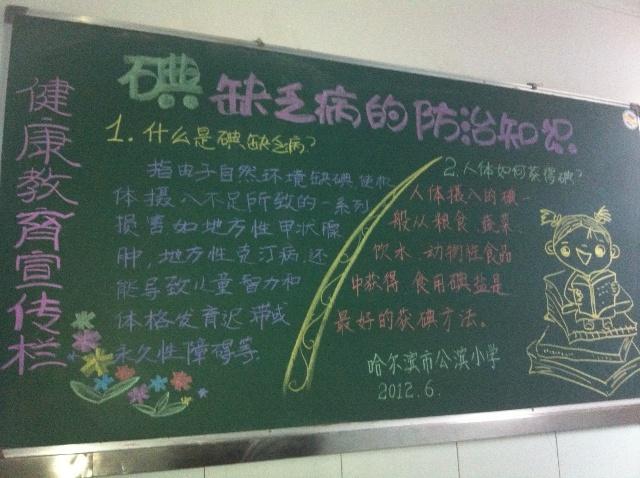 健康教育宣传栏
碘缺乏病的防治知识
1.什么是碘缺乏病?
指由于自然环境缺碘使机
体摄入不足所致的一系列
损害如地方性甲状腺
肿,地方性克汀病,还
能导致儿童智力和
体格发育迟滞或
永久性障碍等.
2.人体如何获得碘?
人体摄入的碘一
般从粮食、蔬菜、
饮水、动物性食品
中获得.食用碘盐是
最好的获碘方法。
哈尔滨市公滨小学
2012.6.